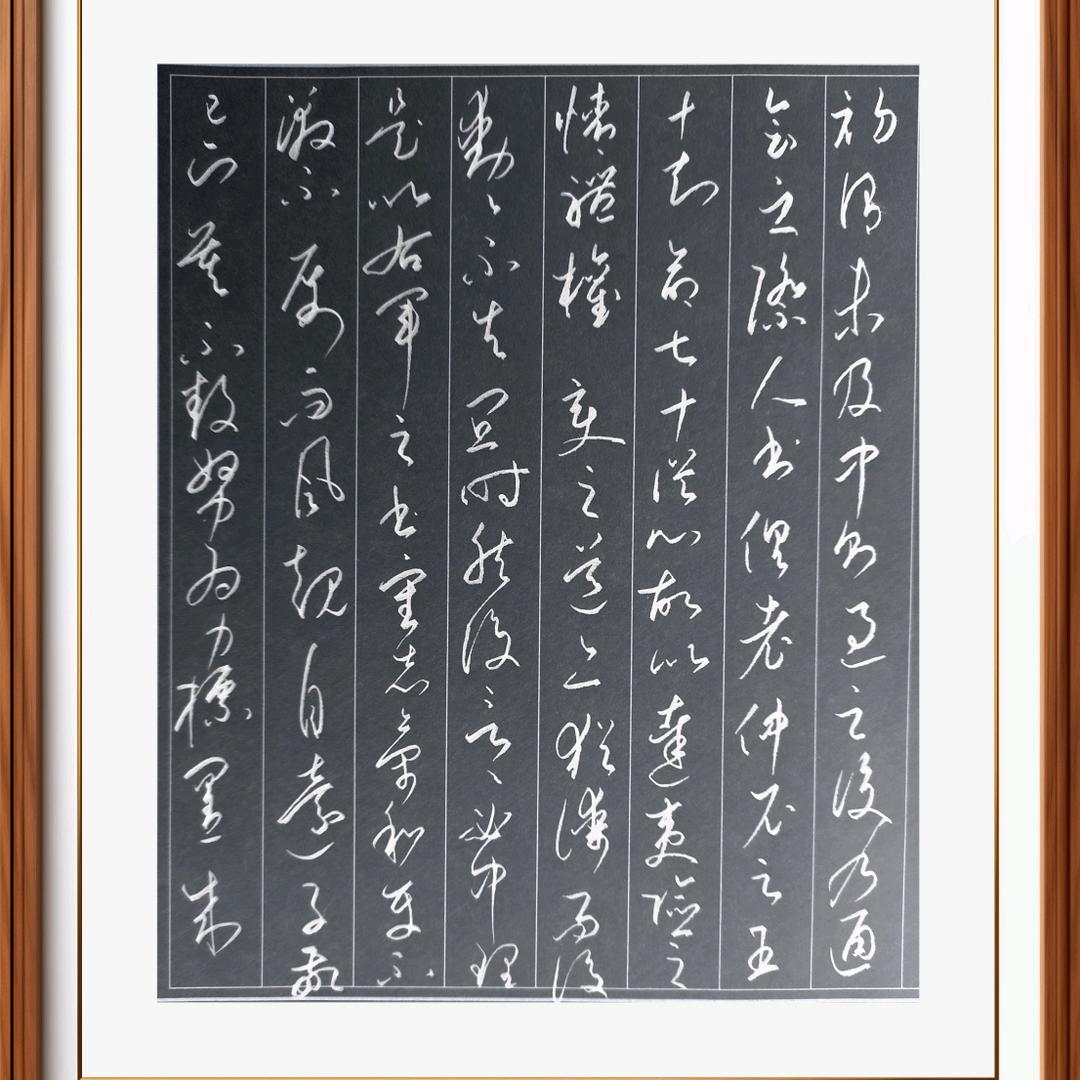 初謂未及中則過之後乃通
會之際人書俱老仲尼云五
十知命七十從心故以達夷險之
情體權變之道亦猶謀而後
動〻不失宜時然後言〻必中理
是以右軍之書審志氣和平不
激不厲而風規自遠子敬
已下莫不鼓努為力標置成